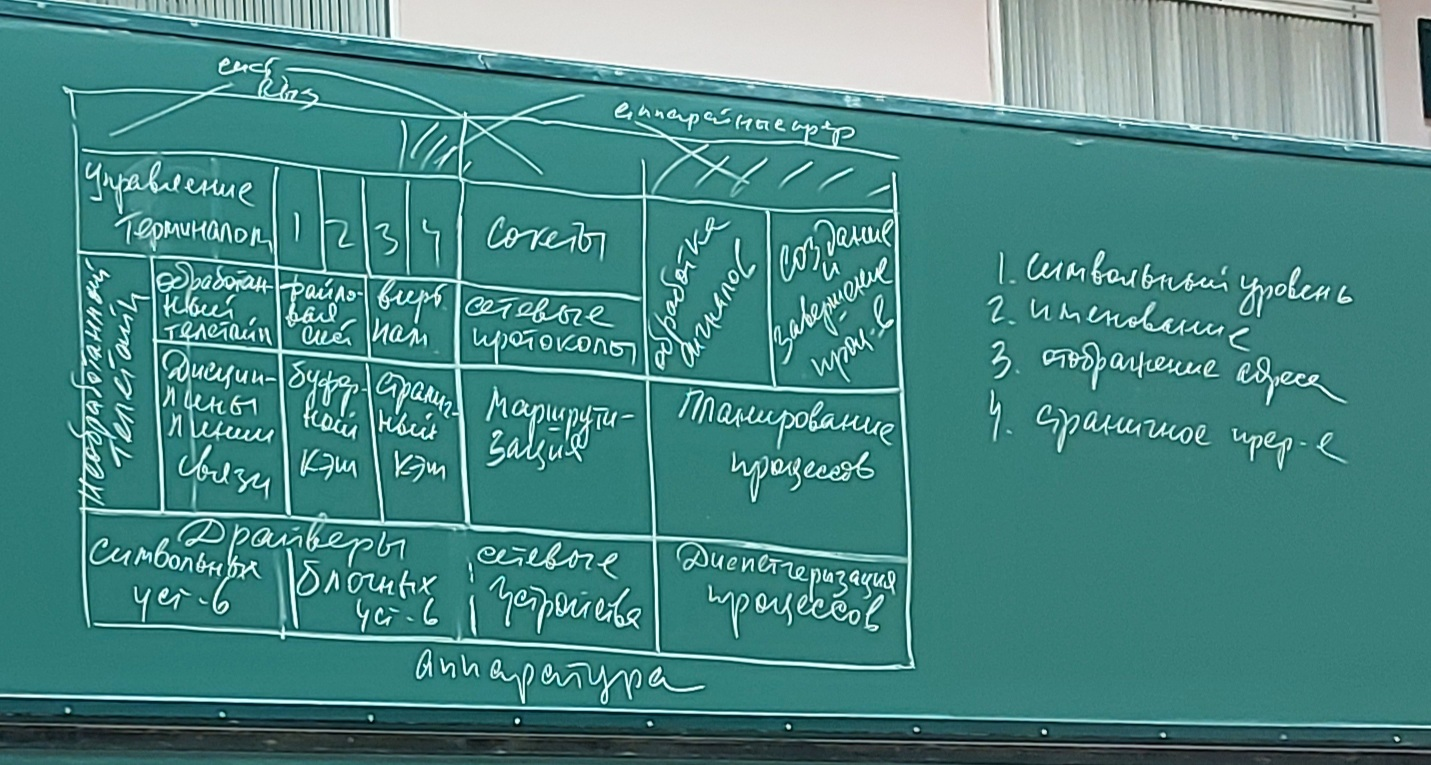 сист
выз
аппаратные прер
Управление
Терминалом
1
2
3
4
Сокеты
обработка
сигналов
создание
и
завершение
проц-в
Необработанный
телетайп
обработан-
ный
телетайп
файло-
вая
сист
вирт
пам
сетевые
протоколы
Дисцип-
лины
линии
связи
буфер-
ный
кэш
странич-
ный
кэш
Маршрути-
зация
Планирование
процессов
Драйверы
символьных
уст-в
блочных
уст-в
сетевые
устройства
Диспетчеризация
процессов
аппаратура
1. символьный уровень
2. именование
3. отображение адреса
4. страничное прер-е